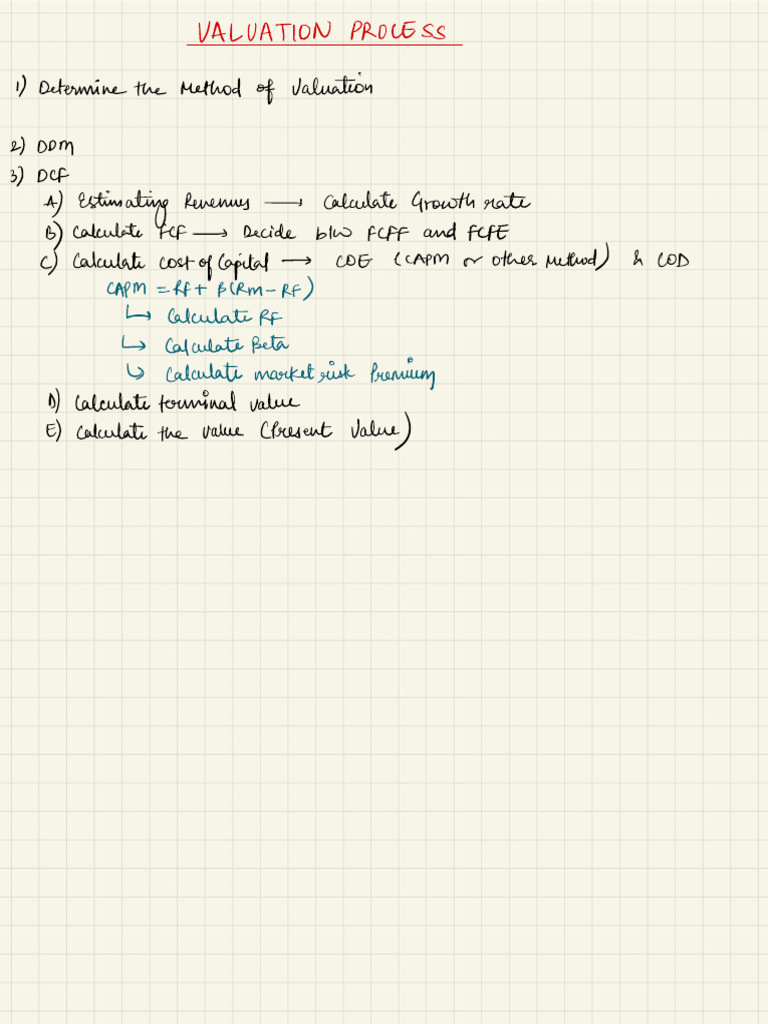 VALUATION PROCESS
1) Determine the Method of Valuation
2) DDM
3) DCF
A) Estimating Revenues → Calculate Growth rate
B) Calculate FCF → Decide b/w FCFF and FCFE
C) Calculate cost of Capital → COE (CAPM or other Method) & COD
CAPM = RF + β(RM - RF)
↳ Calculate RF
↳ Calculate Beta
↳ Calculate market risk Premium
D) Calculate terminal value
E) Calculate the value (Present Value)